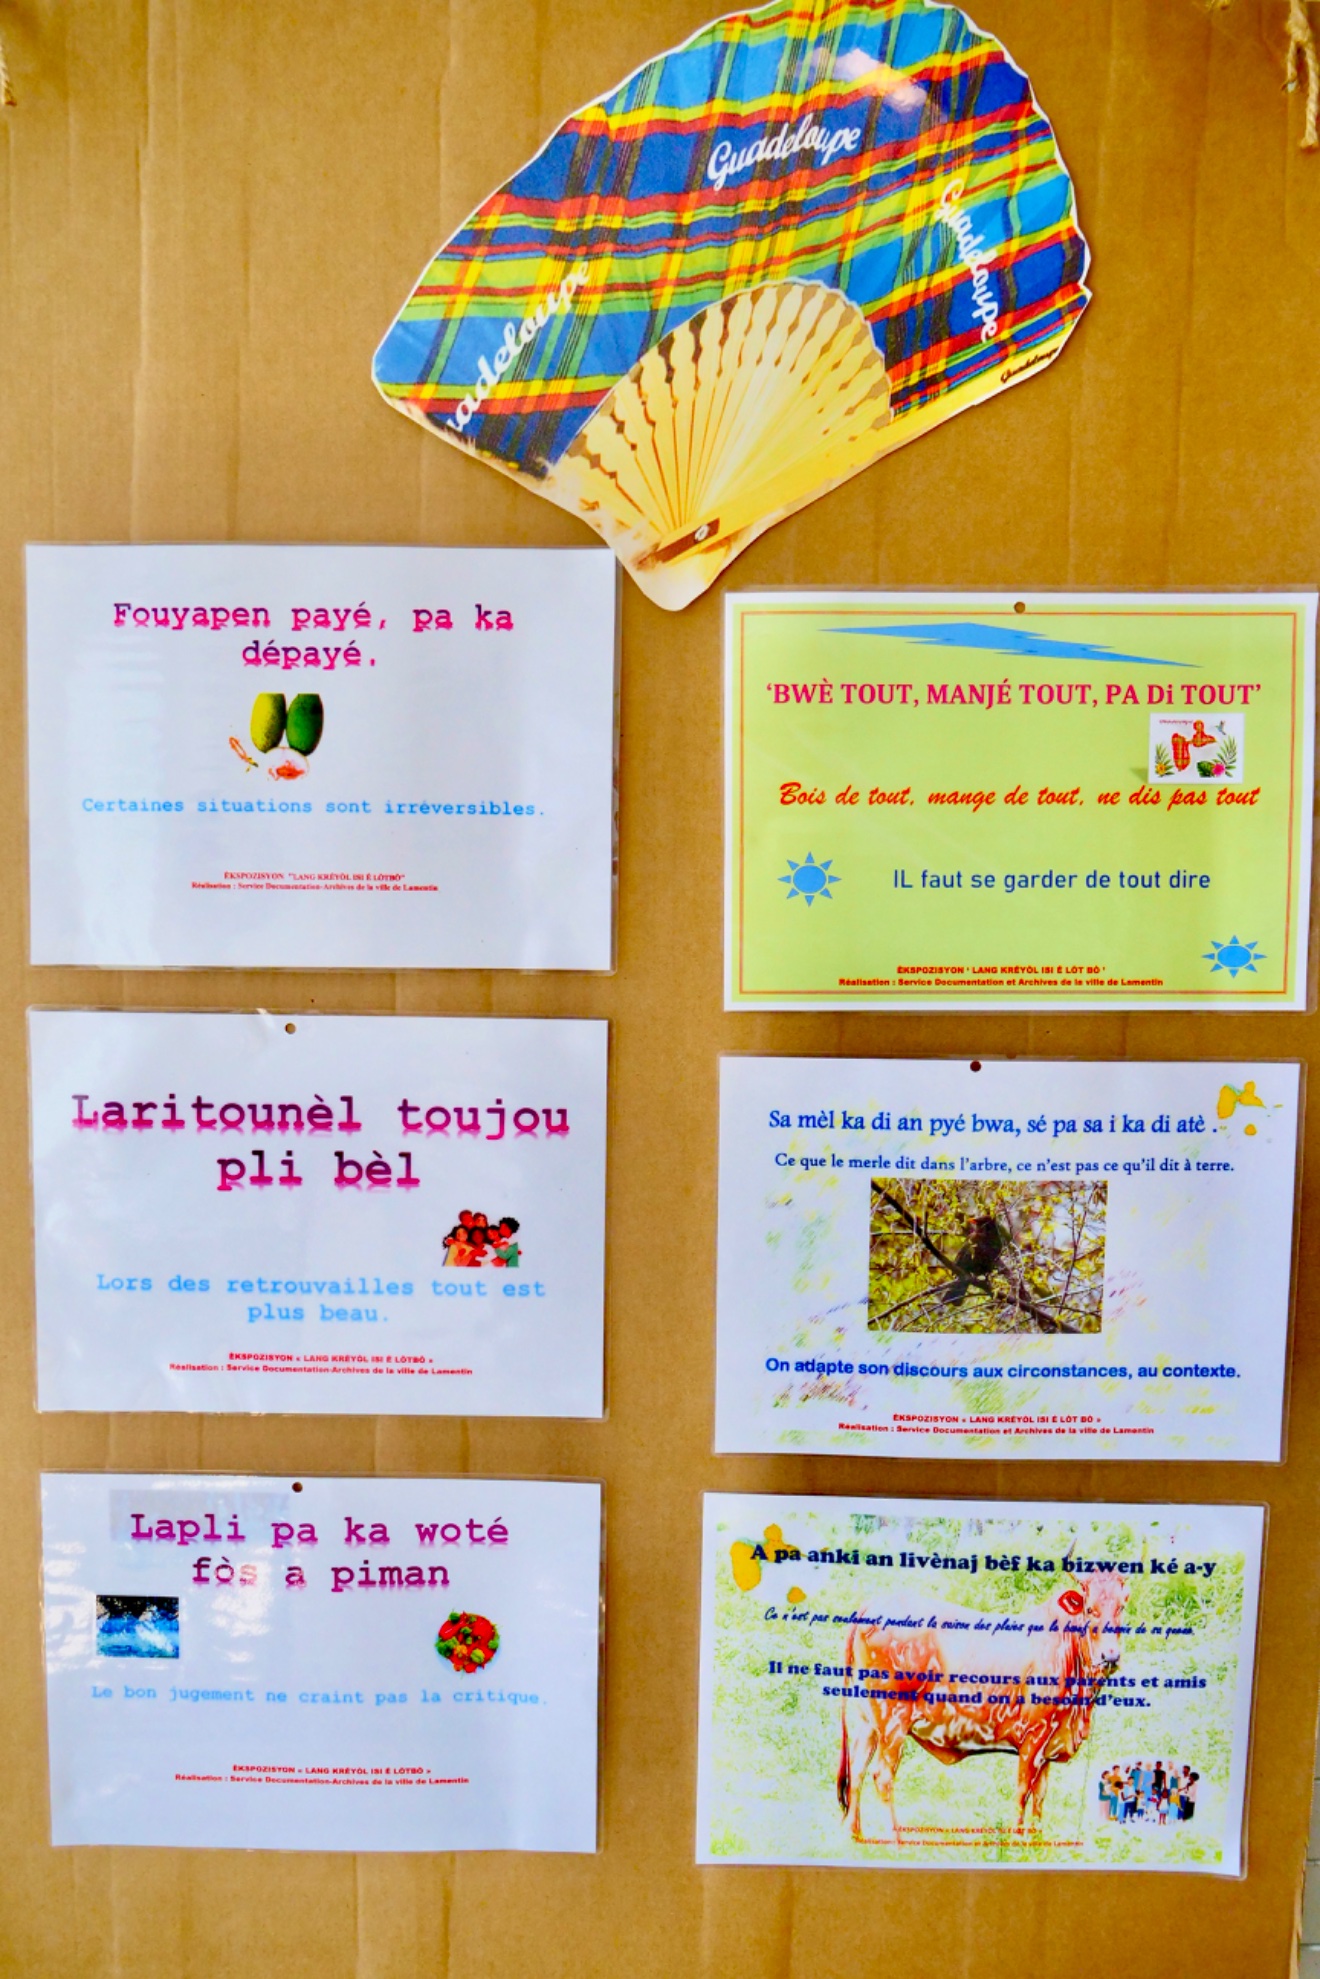 Guadeloupe
Guadeloupe
adeloupe
Guadeloupe
Fouyapen payé, pa ka
dépayé.
Certaines situations sont irréversibles.
ÈKSPOZISYON "LANG KRÉYÒL ISI É LÒTBÒ"
Réalisation : Service Documentation-Archives de la ville de Lamentin
Laritounèl toujou
pli bèl
Lors des retrouvailles tout est
plus beau.
ÈKSPOZISYON « LANG KRÉYÒL ISI É LÒTBÒ »
Réalisation : Service Documentation-Archives de la ville de Lamentin
Lapli pa ka woté
fòs a piman
Le bon jugement ne craint pas la critique.
ÈKSPOZISYON « LANG KRÉYÒL ISI É LÒTBÒ »
Réalisation : Service Documentation-Archives de la ville de Lamentin
‘BWÈ TOUT, MANJÉ TOUT, PA Di TOUT’
Bois de tout, mange de tout, ne dis pas tout
IL faut se garder de tout dire
ÈKSPOZISYON ‘ LANG KRÉYÒL ISI É LÒT BÒ ’
Réalisation : Service Documentation et Archives de la ville de Lamentin
Sa mèl ka di an pyé bwa, sé pa sa i ka di atè .
Ce que le merle dit dans l’arbre, ce n’est pas ce qu’il dit à terre.
On adapte son discours aux circonstances, au contexte.
ÈKSPOZISYON « LANG KRÉYÒL ISI É LÒT BÒ »
Réalisation : Service Documentation et Archives de la ville de Lamentin
A pa anki an livènaj bèf ka bizwen ké a-y
Ce n'est pas seulement pendant la saison des pluies que le bœuf a besoin de sa queue.
Il ne faut pas avoir recours aux parents et amis
seulement quand on a besoin d’eux.
ÈKSPOZISYON « LANG KRÉYÒL ISI É LÒT BÒ »
Réalisation : Service Documentation et Archives de la ville de Lamentin